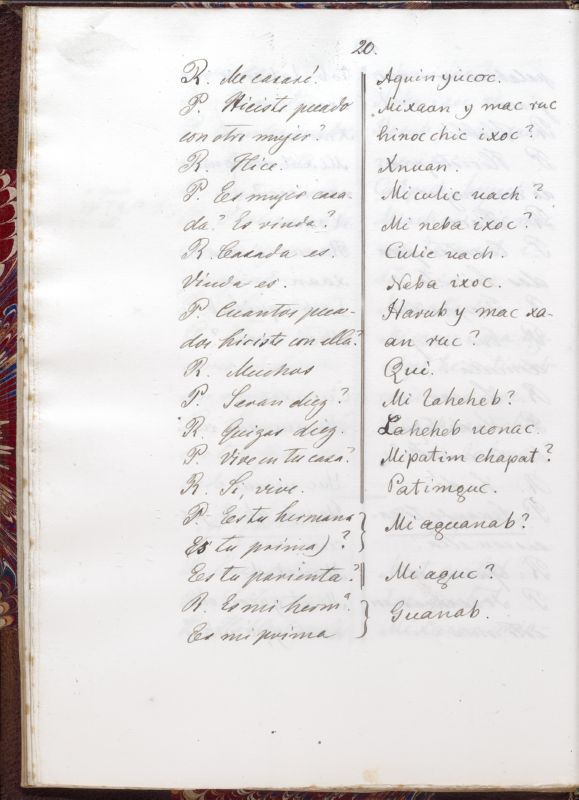 20.
R. Me casaré.
Aquin yucoc.
P. Hiciste pecado
Mixaan y mac ruc
con otra mujer?
hinoc chic ixoc?
R. Hice.
Xnuan.
P. Es mujer casa-
Mi culic uach?
da? Es viuda?
Mi neba ixoc?
R. Casada es.
Culic uach.
Viuda es.
Neba ixoc.
P. Cuantos peca-
Harub y mac xa-
dos hiciste con ella?
an ruc?
R. Muchos
Qui.
P. Seran diez?
Mi laheheb?
R. Quizas diez.
Laheheb uonac.
P. Vive en tu casa?
Mipatim chapat?
R. Si, vive.
Patimguc.
P. Es tu hermana
Es tu prima) ?
Mi aguanab?
Es tu parienta?
Mi aguc?
R. Es mi hermª.
Es mi prima
Guanab.